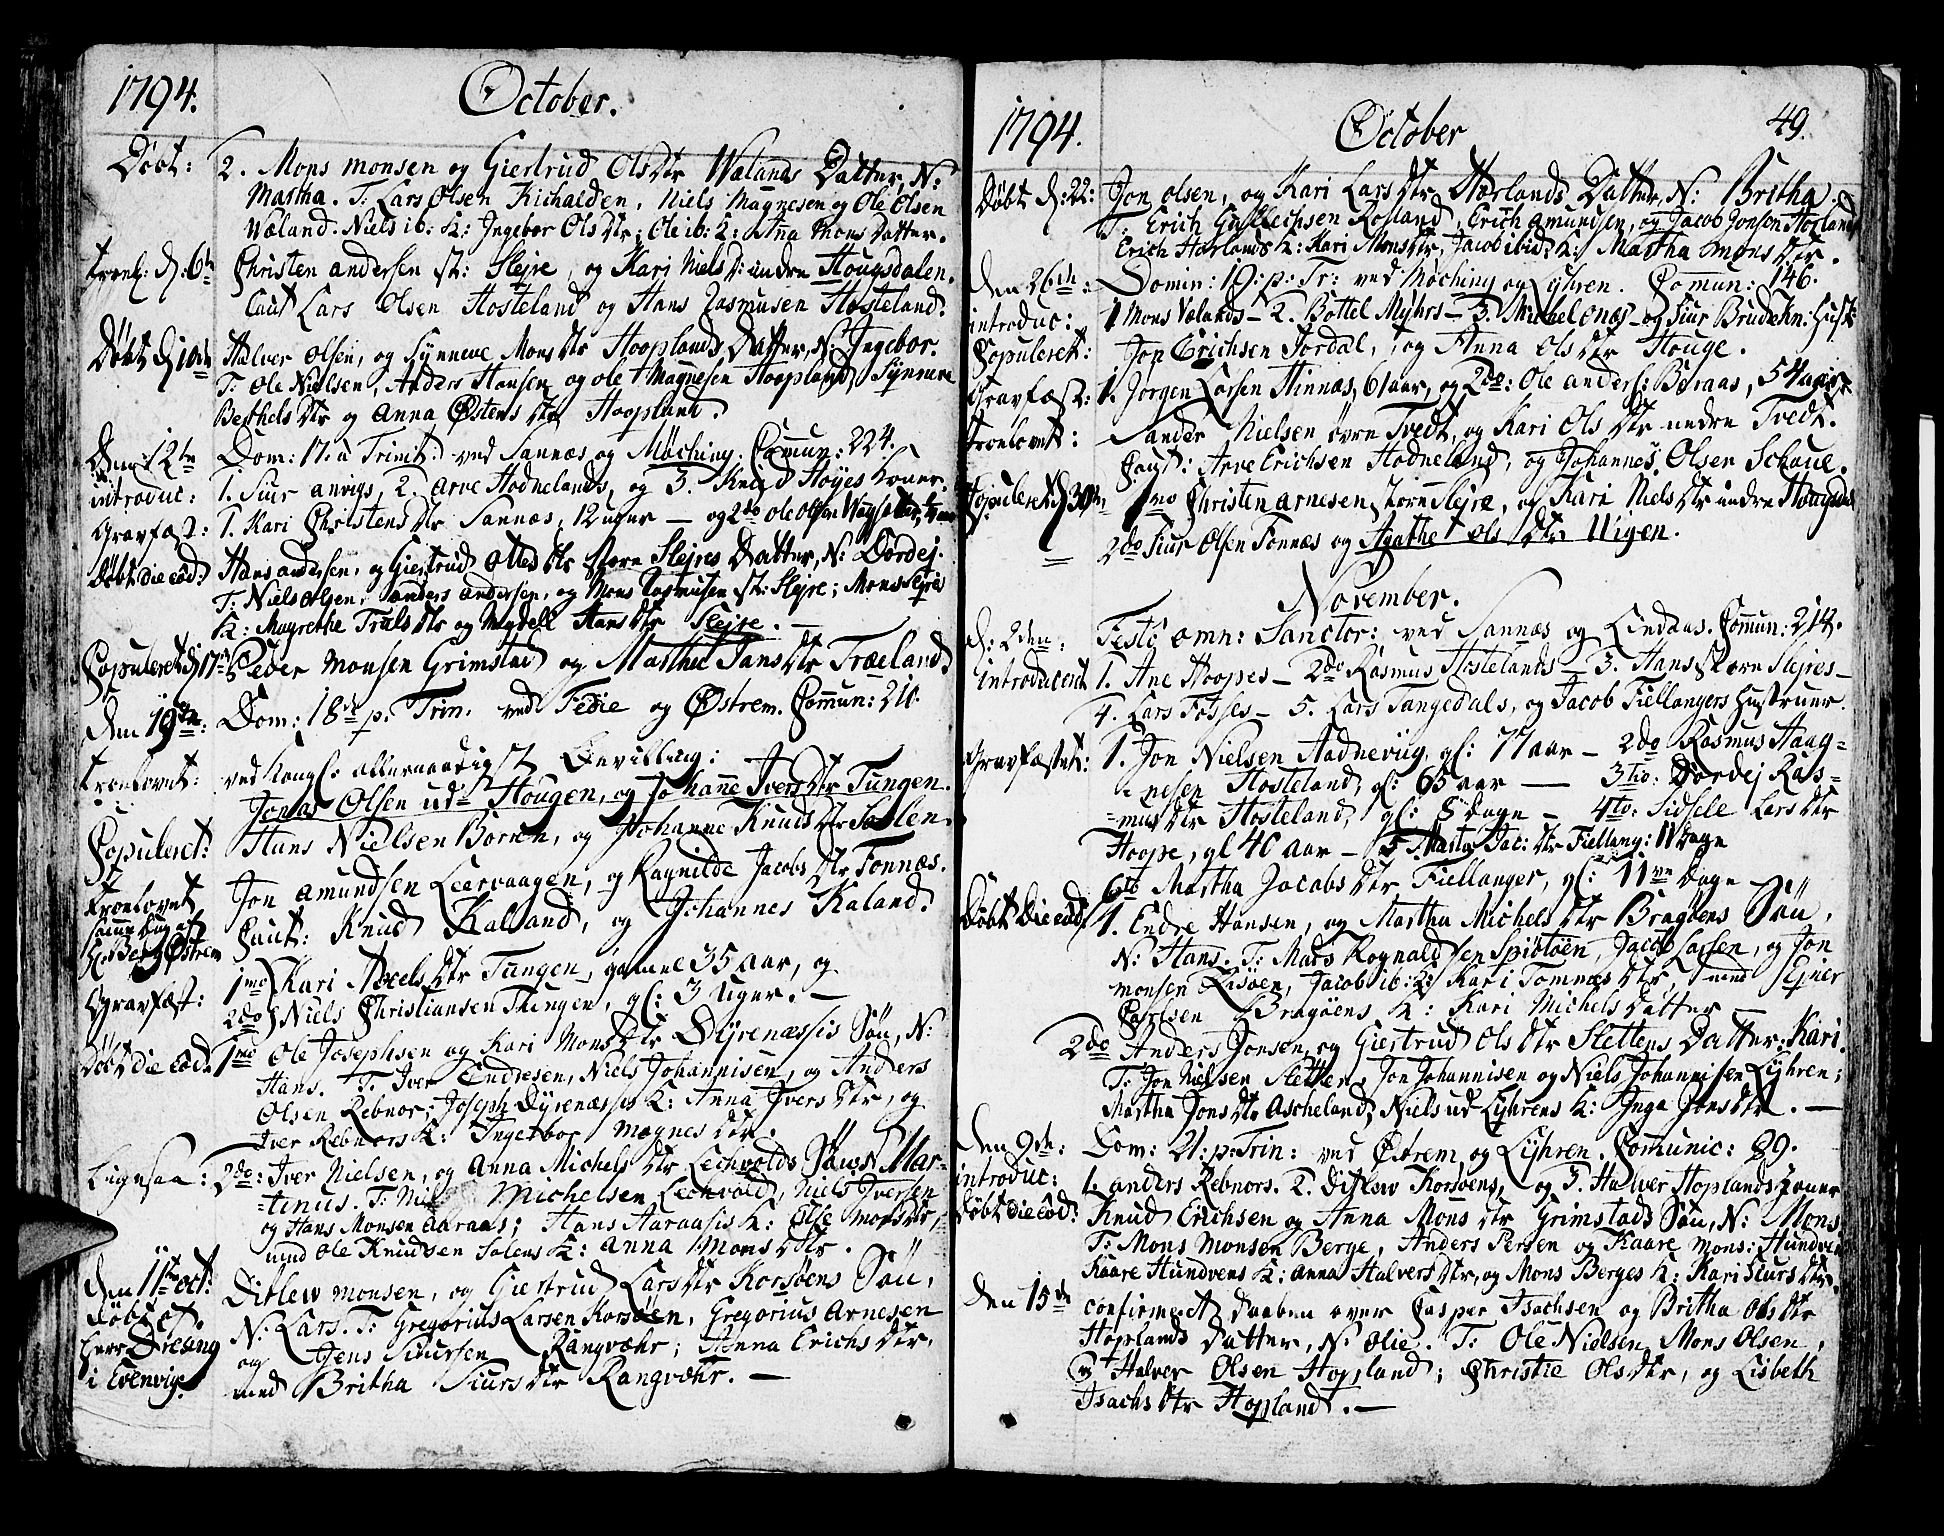 1794. October.
Döbt: 2. Mons monsen og Giertrud Olsdtr Wælands Datter, N:
Martha. T: Lars Olsen Kichalden, Niels Magnesen og Ole Olsen
Wæland. Niels ib: K: Ingebor Olsdtr; Ole ib: K: Anna Monsdatter.
troel: d: 6te Christen andersen st: Slejre, og Kari Nielsd: undre Hougsdalen.
Caut Lars Olsen Hosteland og Hans Rasmusen Hosteland.
Döbt d 10de Halver Olsen, og Synneve Monsdtr Hooplands Datter, N: Ingebor.
T: Ole Nielsen, Anders Hansen og ole Magnesen Hoopland, Synneve
Berthelsdtr og Anna Østensdtr Hoopland.
Den 12te Dom: 17. a Trinit. ved Sannæs og Møching. Comun: 224.
introduc: 1. Siur anvigs, 2. Arve Hodnelands, og 3. Knud Høyes koner.
Gravfæst: 1. Kari Christensdtr Sannæs, 12 uger — og 2do ole olsen
Döbt die eod: Hans andersen, og Giertrud Ottesdtr store Slejres Datter, N: Dordej.
T: Niels Olsen, anders andersen, og Mons Rasmusen st: Slejre; Mons Slejre
K: Magrethe Trulsdtr og Magdeli Hansdtr Slejre. —
Copuleret d 17de Peder Monsen Grimstad og Martha Jansdtr Træland.
Den 19de: Dom: 18de p. Trin. ved Fedie og Østrem. Comun: 210.
troelovet: ved Kongl: allernaadigst Bevilling:
Jonas Olsen ud= Hougen, og Johanne Iversdtr Tungen.
Copuleret: Hans Nielsen Börnen, og Johanne Knudsdtr Solen.
troelovet Jon amundsen Leervaagen, og Ragnilde Jacobsdtr Tonnæs.
samme dag af Caut: Knud Kaland, og Johannes Kaland.
H: Berg Østrem
Gravfæst: 1mo Kari Axelsdtr Tungen, gamel 35 aar, og
2do Niels Christiansen Thingen, gl: 3 Uger. —
Döbt die eod: 1mo Ole Josephsen og Kari Monsdtr Dyrenæssis Søn, N:
Hans. T: Iver Endresen, Niels Johannisen, og Anders
Olsen Rebnor; Joseph Dyrenæssis K: Anna Iversdtr, og
Iver Rebnors K: Ingebor Magnesdtr.
Ligesaa: 2do: Iver Nielsen, og Anna Michelsdtr Lechvolds Søn N: Mar-
=tinus. T: Michelsen Lechvold, Niels Iversen
og Hans Monsen Aaraas; Hans Aaraasis K: Else Monsdtr,
med Ole Knudsen Solens K: Anna Monsdtr.
Den 11te oct: Ditlew monsen, og Giertrud Larsdtr Korsøens Søn,
döbt af N: Lars. T: Gregorius Larsen Korsöen, Gregorius Arnesen
Herr Dresing og Jens Siursen Rangvöhr; Anna Erichsdtr,
i Evenvig. med Britha Siursdtr Rangvöhr. —
1794. October 49.
Döbt d: 22: Jon Olsen, og Kari Larsdtr Hörlands Datter, N: Britha.
T: Erich Gullechsen Rosland, Erich Amundsen, og Jacob Jonsen Horland
Erich Horlands K: Kari Monsdtr, Jacob ibid: K: Martha Monsdtr.
Den 26de: Domin: 19: p: Tr: ved Møching og Lyhren. Comun: 146.
introduc: 1 Mons Vælands — 2. Bottel Myhrs — 3. Michel Onæs — og Siur
Copuleret: Jon Erichsen Jordal, og Anna Olsdtr Houge.
Gravfæst: 1. Jørgen Larsen Hinnæs, 61 aar, og 2do: Ole anders: Beraas, 54 aar
troelovet: Sander Nielsen övre Tvedt, og Kari Olsdtr nedre Tvedt.
Caut: Arve Erichsen Hodneland, og Johannes Olsen Schaue.
Copuleret d 30te 1mo Christen Arnesen store Slejre, og Kari Nielsdtr undre
2do Siur Olsen Tonnæs og Agathe Olsdtr Wigen.
November.
d: 2den: Festo omn: Sanctor: ved Sannæs og Lindaas. Comun: 212.
introduceret 1. Ane Hoopes — 2do Rasmus Hostelands — 3. Hans store Slejres —
4. Lars Fosses — 5. Lars Tangedals, og Jacob Fiellangers Hustruer.
Gravfæstet: 1. Jon Nielsen Aadnevig, gl: 77 aar — 2do Rasmus Haag-
nesen Hosteland, gl: 65 aar — 3tio: Dordej Ras-
=musdtr Hosteland, gl: 8 dage — 4to: Sidsele Larsdtr
Hoope, gl 40 aar — 5 Marta Jac: dtr Fiellang: 11 Dage
6to Martha Jacobsdtr Fiellanger, gl: 11ve Dage
Döbt die eod: 1. Endre Hansen, og Martha Michelsdtr Bragöens Sön,
N: Hans. T: Mads Rognaldsen Spiötöen, Jacob Larsen, og Jon
monsen Risöen, Jacob ib: K: Kari Tommesdtr, med Sejner
Carlsen Bragöens K: Kari Michelsdatter
2do Anders Jonsen, og Giertrud Olsdtr Slettens Datter: Kari.
T: Jon Nielsen Sletten, Jon Johannisen og Niels Johannisen Lyhren;
Martha Jonsdtr Ascheland, Niels ud Lyhrens K: Inga Jonsdtr. —
Den 9de: Dom: 21: p: Trin: ved Østrem og Lyhren. Comunic: 89.
introduc: 1. anders Rebnors. 2. Ditlew Korsøens, og 3. Halver Hoplands koner
Döbt die eod: Knud Erichsen og Anna Monsdtr Grimstads Søn, N: Mons
T: Mons Monsen Berge, Anders Persen og Kaare Mons: Hundven
Kaare Hundvens K: anna Halversdtr, og Mons Berges K: Kari Siursdtr.
Den 15de confirmeret daaben over Casper Isachsen og Britha Olsdtr
Hoplands Datter, N: Olie. T: Ole Nielsen, Mons Olsen,
og Halver Olsen Hopland; Christie Olsdtr, og Lisbeth
Isachsdtr Hopland. —